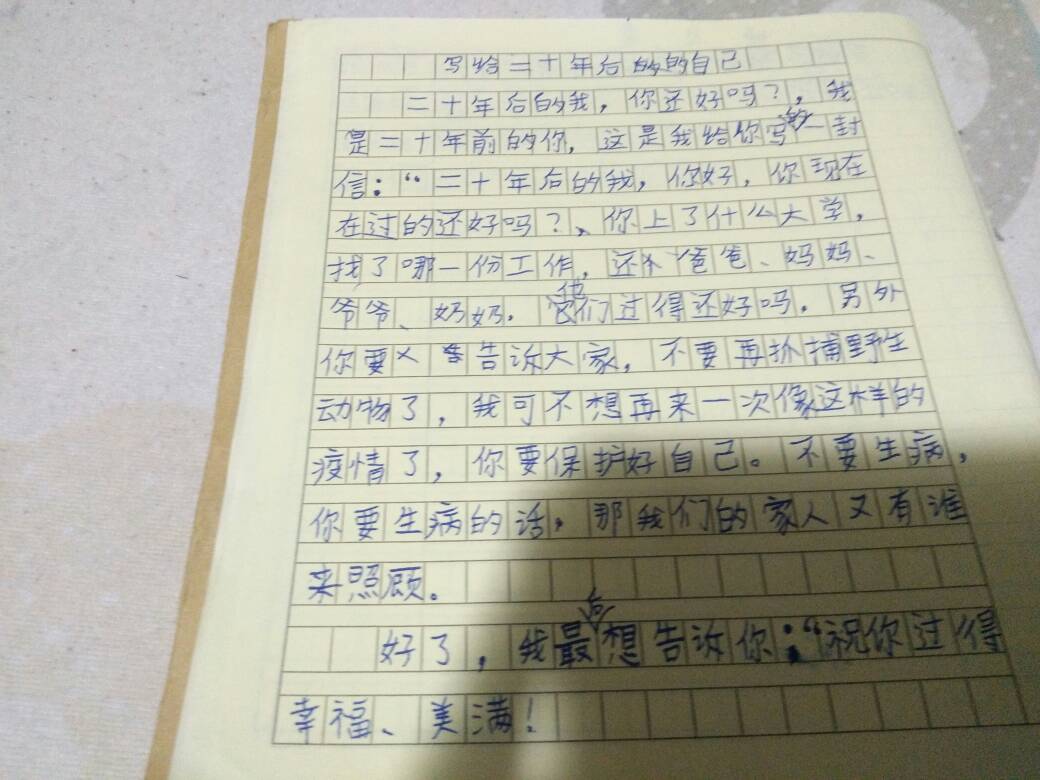 写给二十年后的的自己
二十年后的我，你还好吗？，我
是二十年前的你，这是我给你写的一封
信：“二十年后的我，你好，你现在
在过的还好吗？、你上了什么大学，
找了哪一份工作，还爸爸、妈妈、
爷爷、奶奶。他们过得还好吗，另外
你要告诉大家，不要再抓捕野生
动物了，我可不想再来一次像这样的
疫情了，你要保护好自己。不要生病，
你要生病的话，那我们的家人又有谁
来照顾。
好了，我最后想告诉你：“祝你过得
幸福、美满！